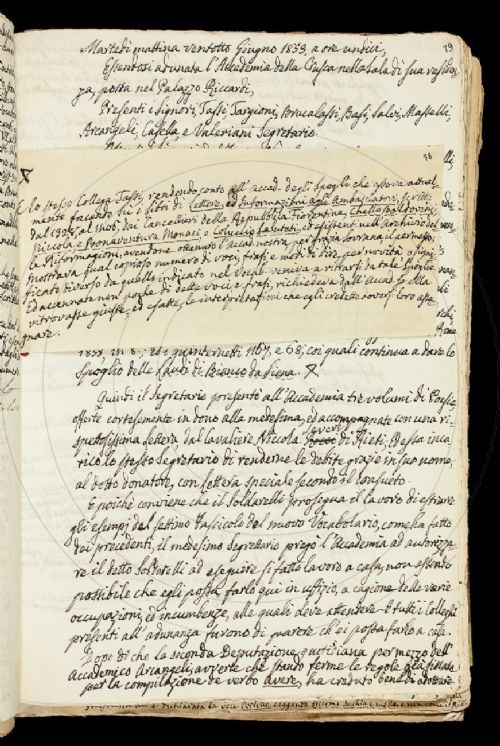 79
Martedì mattina ventotto Giugno 1853, a ore undici,
Essendosi adunata l'Accademia della Crusca nella sala di sua residen-
za, posta nel Palazzo Riccardi,
Presenti i Signori, Tassi, Targioni, Brucalassi, Basi, Salvi, Masselli,
Arcangeli, Casella e Valeriani Segretario.
78
Lo stesso Collega Tassi, rendendo conto all'Accad. degli Spogli che estava attual-
mente facendo sui libri di Lettere, ed Informazioni agli Ambasciatori, scritte
dal 1308, al 1406, dai Cancellieri della Repubblica Fiorentina,
Niccola, e Bonaventura Monaci, e Coluccio Salutati, ed esistenti nell'Archivio del-
le Riformagioni, avendone ottenuto l'Accad. nostra
mostrava qual copioso numero di voci, frasi, e modi di dire, per novità o signi-
ficato diverso da quello indicato nel Vocab. veniva a ritrarsi da tale Spoglio.
Ed accennate non poche di dette voci, e frasi, richiedeva dall'Accad. se ella
ritrovasse giuste, ed esatte, le interpretazioni che egli credeva loro asse-
gnare.
e quinternetti 1167, e 68, coi quali continua a dare lo
Spoglio delle Laudi di Bianco da Siena.
Quindi il Segretario presentò all'Accademia tre volumi di Poesie
offerte cortesemente in dono alla medesima, ed accompagnate con una ri-
spettosissima lettera dal cavaliere Niccola di Rieti. Essa inca-
ricò lo stesso Segretario di renderne le debite grazie in suo nome,
al detto donatore, con lettera speciale secondo il consueto.
E poichè conviene che il Soldarelli prosegua il lavoro di estrarre
gli esempj dal settimo Fascicolo del nuovo Vocabolario, come ha fatto
dei precedenti, il medesimo Segretario pregò l'Accademia ad autorizza-
re il detto Soldarelli ad eseguire sì fatto lavoro a casa, non essendo
possibile che egli possa farlo qui in ufizio, a cagione delle varie
occupazioni, ed incumbenze, alle quali deve attendere. E tutti i Colleghi
presenti all'adunanza furono di parere ch'ei possa farlo a casa.
Dopo di che la seconda Deputazione quotidiana per mezzo dell'
Accademico Arcangeli, avverte che stando ferme le regole già fissate
per la compilazione de verbo Avere, ha creduto bene di adottare